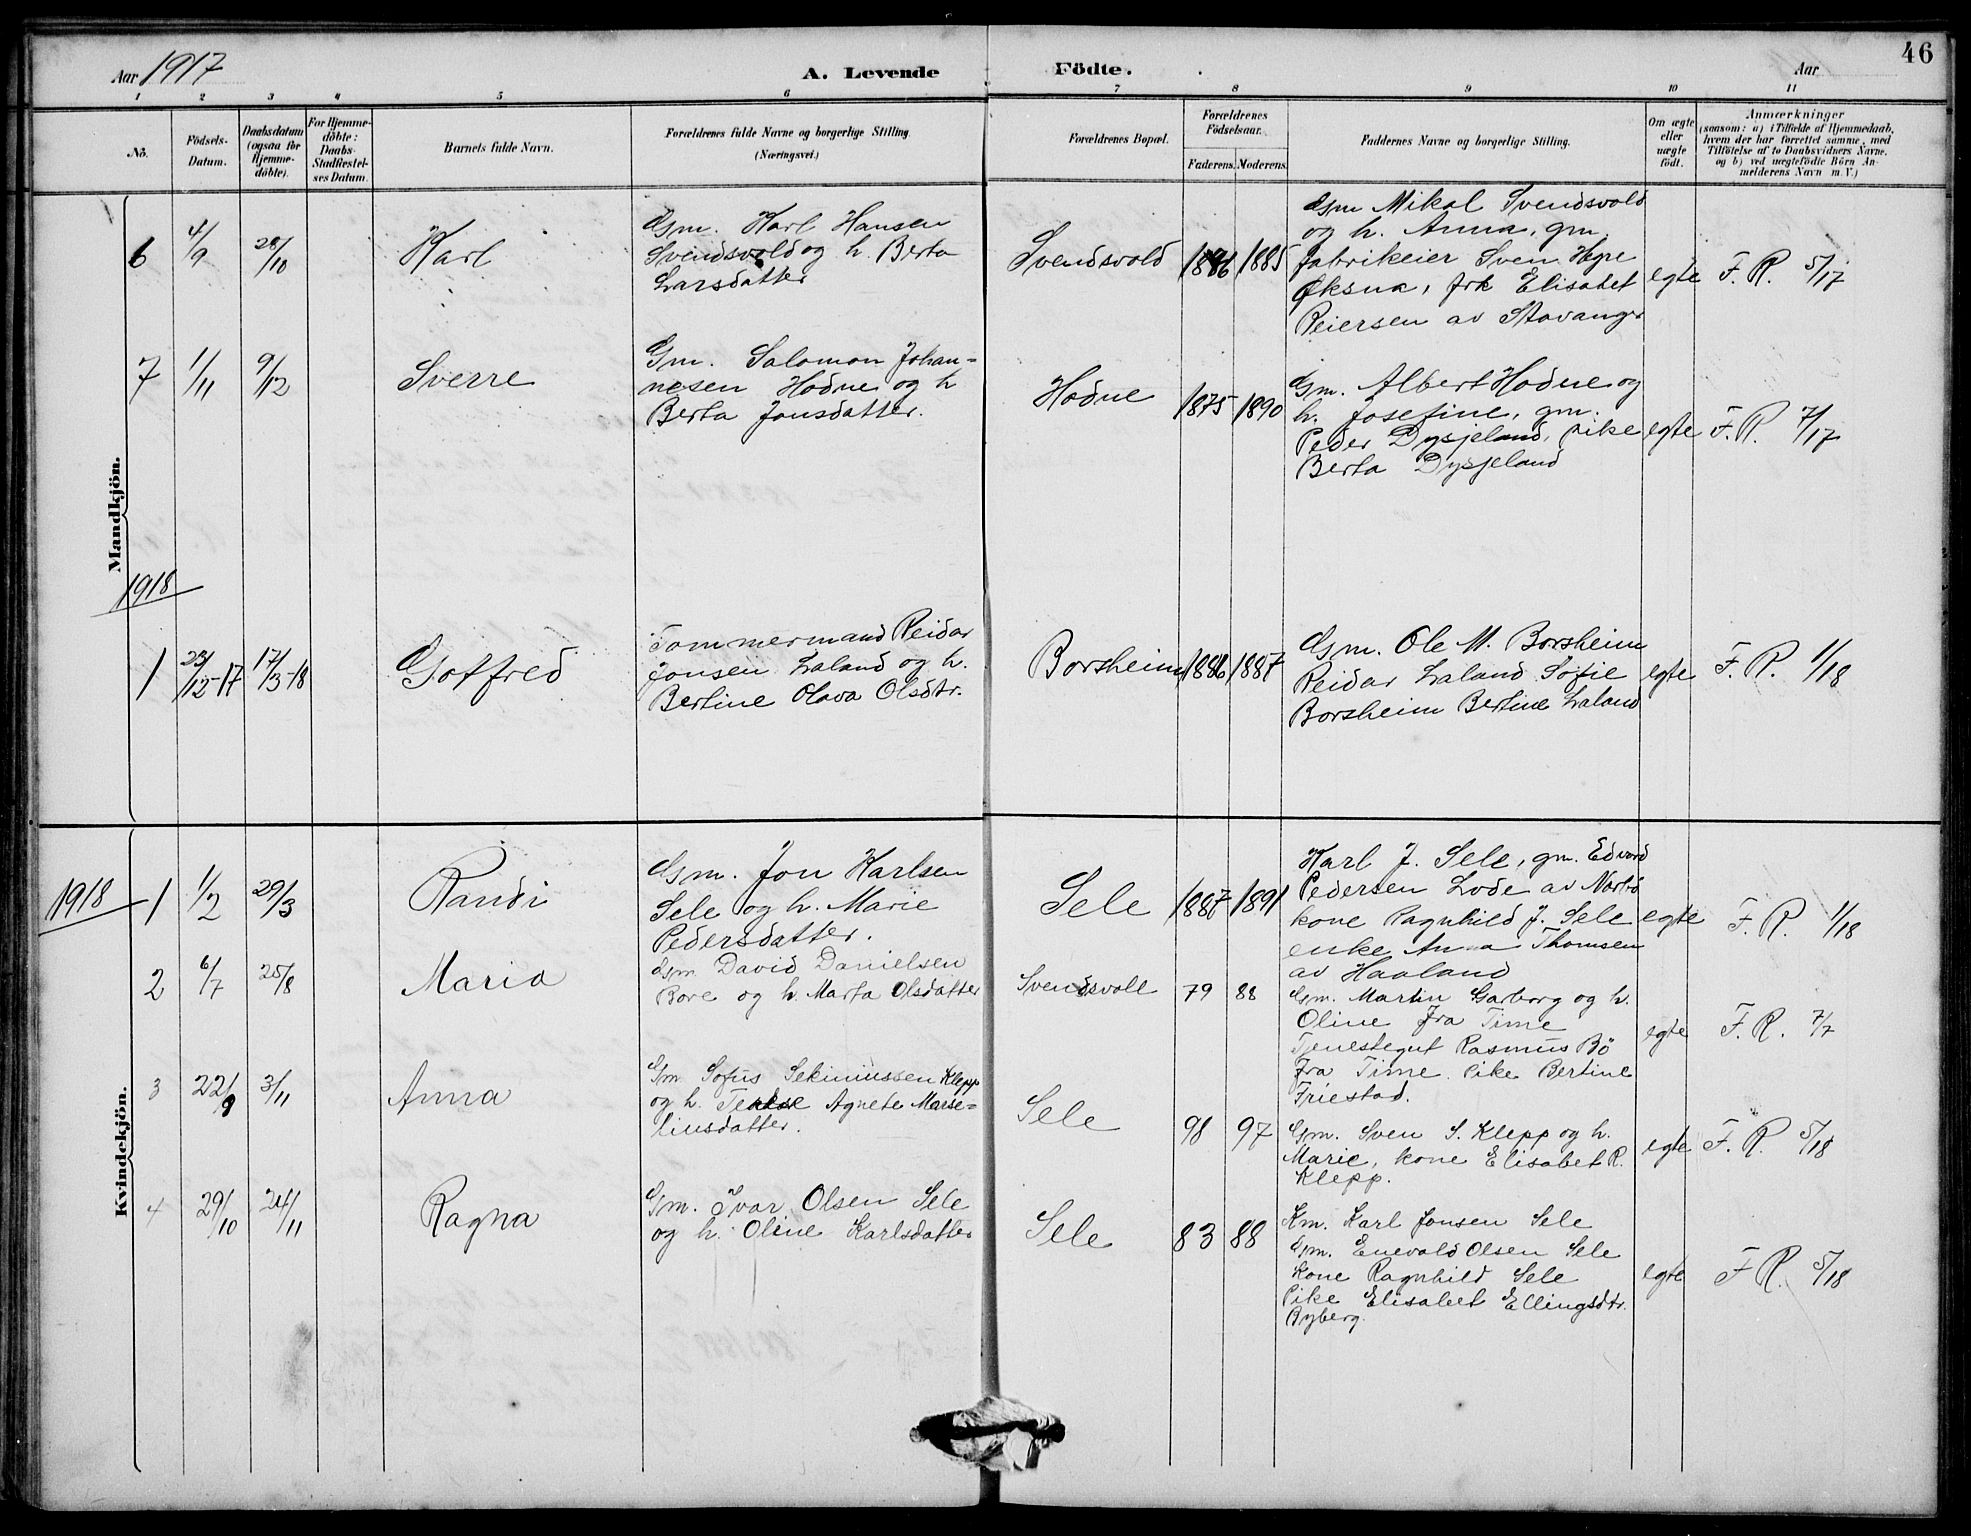 46
Aar 1917
A. Levende
Födte.
Aar
1 2 3 4 5 6 7 8 9 10 11
No.
Födsels-
Datum.
Daabsdatum
(ogsaa for
Hjemme-
döbte).
For Hjemme-
döbte:
Daabs-
Stadfæstel-
ses Datum.
Barnets fulde Navn.
Forældrenes fulde Navne og borgerlige Stilling
(Næringsvei.)
Forældrenes Bopæl.
Forældrenes
Födselsaar.
Faderens. Moderens.
Faddernes Navne og borgerlige Stilling.
Om ægte
eller
uægte
födt.
Anmærkninger
(saasom: a) i Tilfælde af Hjemmedaab,
hvem der har forrettet samme, med
Tilföielse af to Daabsvidners Navne,
og b) ved uægtefödte Börn An-
melderens Navn m. V.)
Mandkjön.
6
4/9
28/10
Karl
Gm. Karl Hansen
Svendsvold og h. Berta
Larsdatter
Svendsvold
1886
1885
Gm Mikal Svendsvold
og h. Anna, gm.
fabrikeier Sven Hegre
Öksna, frk Elisabet
Reiersen av Stavanger
egte
F. R. 5/17
7
1/11
9/12
Sverre
Gm. Salomon Johan-
nesen Hodne og h
Berta Jonsdatter.
Hodne
1875
1890
Gm. Albert Hodne og
h. Josefine, gm.
Peder Dysjeland, pike
Berta Dysjeland
egte
F. R. 7/17
1918
1
23/12-17
17/3-18
Gotfred
Tommermand Reidar
Jonsen Laland og h.
Bertine Olava Olsdtr.
Borsheim
1886
1887
Gm. Ole M. Borsheim
Reidar Laland Sofie
Borsheim Bertine Laland
egte
F. R. 1/18
Kvindekjön.
1918
1
1/2
29/3
Randi
Gm. Jon Karlsen
Sele og h. Marie
Pedersdatter.
Sele
1887
1891
Karl J. Sele, gm. Edvard
Pedersen Lode av
kone Ragnhild J. Sele
enke Anna Thomsen
av Haaland
egte
F. R. 1/18
2
6/7
25/8
Maria
Gm. David Danielsen
Bore og h. Marta Olsdatter
Svendsvoll
79
88
Gm. Martin Garborg og h.
Oline fra Time
Tjenestegut Rasmus Bö
fra Time. Pike Bertine
Friestad.
egte
F. R. 7/7
3
22/9
3/11
Anna
Gm. Sofus Sekiniussen Klepp
og h. Agnete Marse-
liusdatter.
Sele
98
97
Gm. Sven S. Klepp og h.
Marie, kone Elisabet R.
Klepp.
egte
F. R. 5/18
4
29/10
24/11
Ragna
Gm. Ivar Olsen Sele
og h. Oline Karlsdatter
Sele
83
88
Km. Karl Jonsen Sele
Gm. Enevald Olsen Sele
kone Ragnhild Sele
Pike Elisabet Ellingsdtr.
Byberg.
egte
F R. 5/18